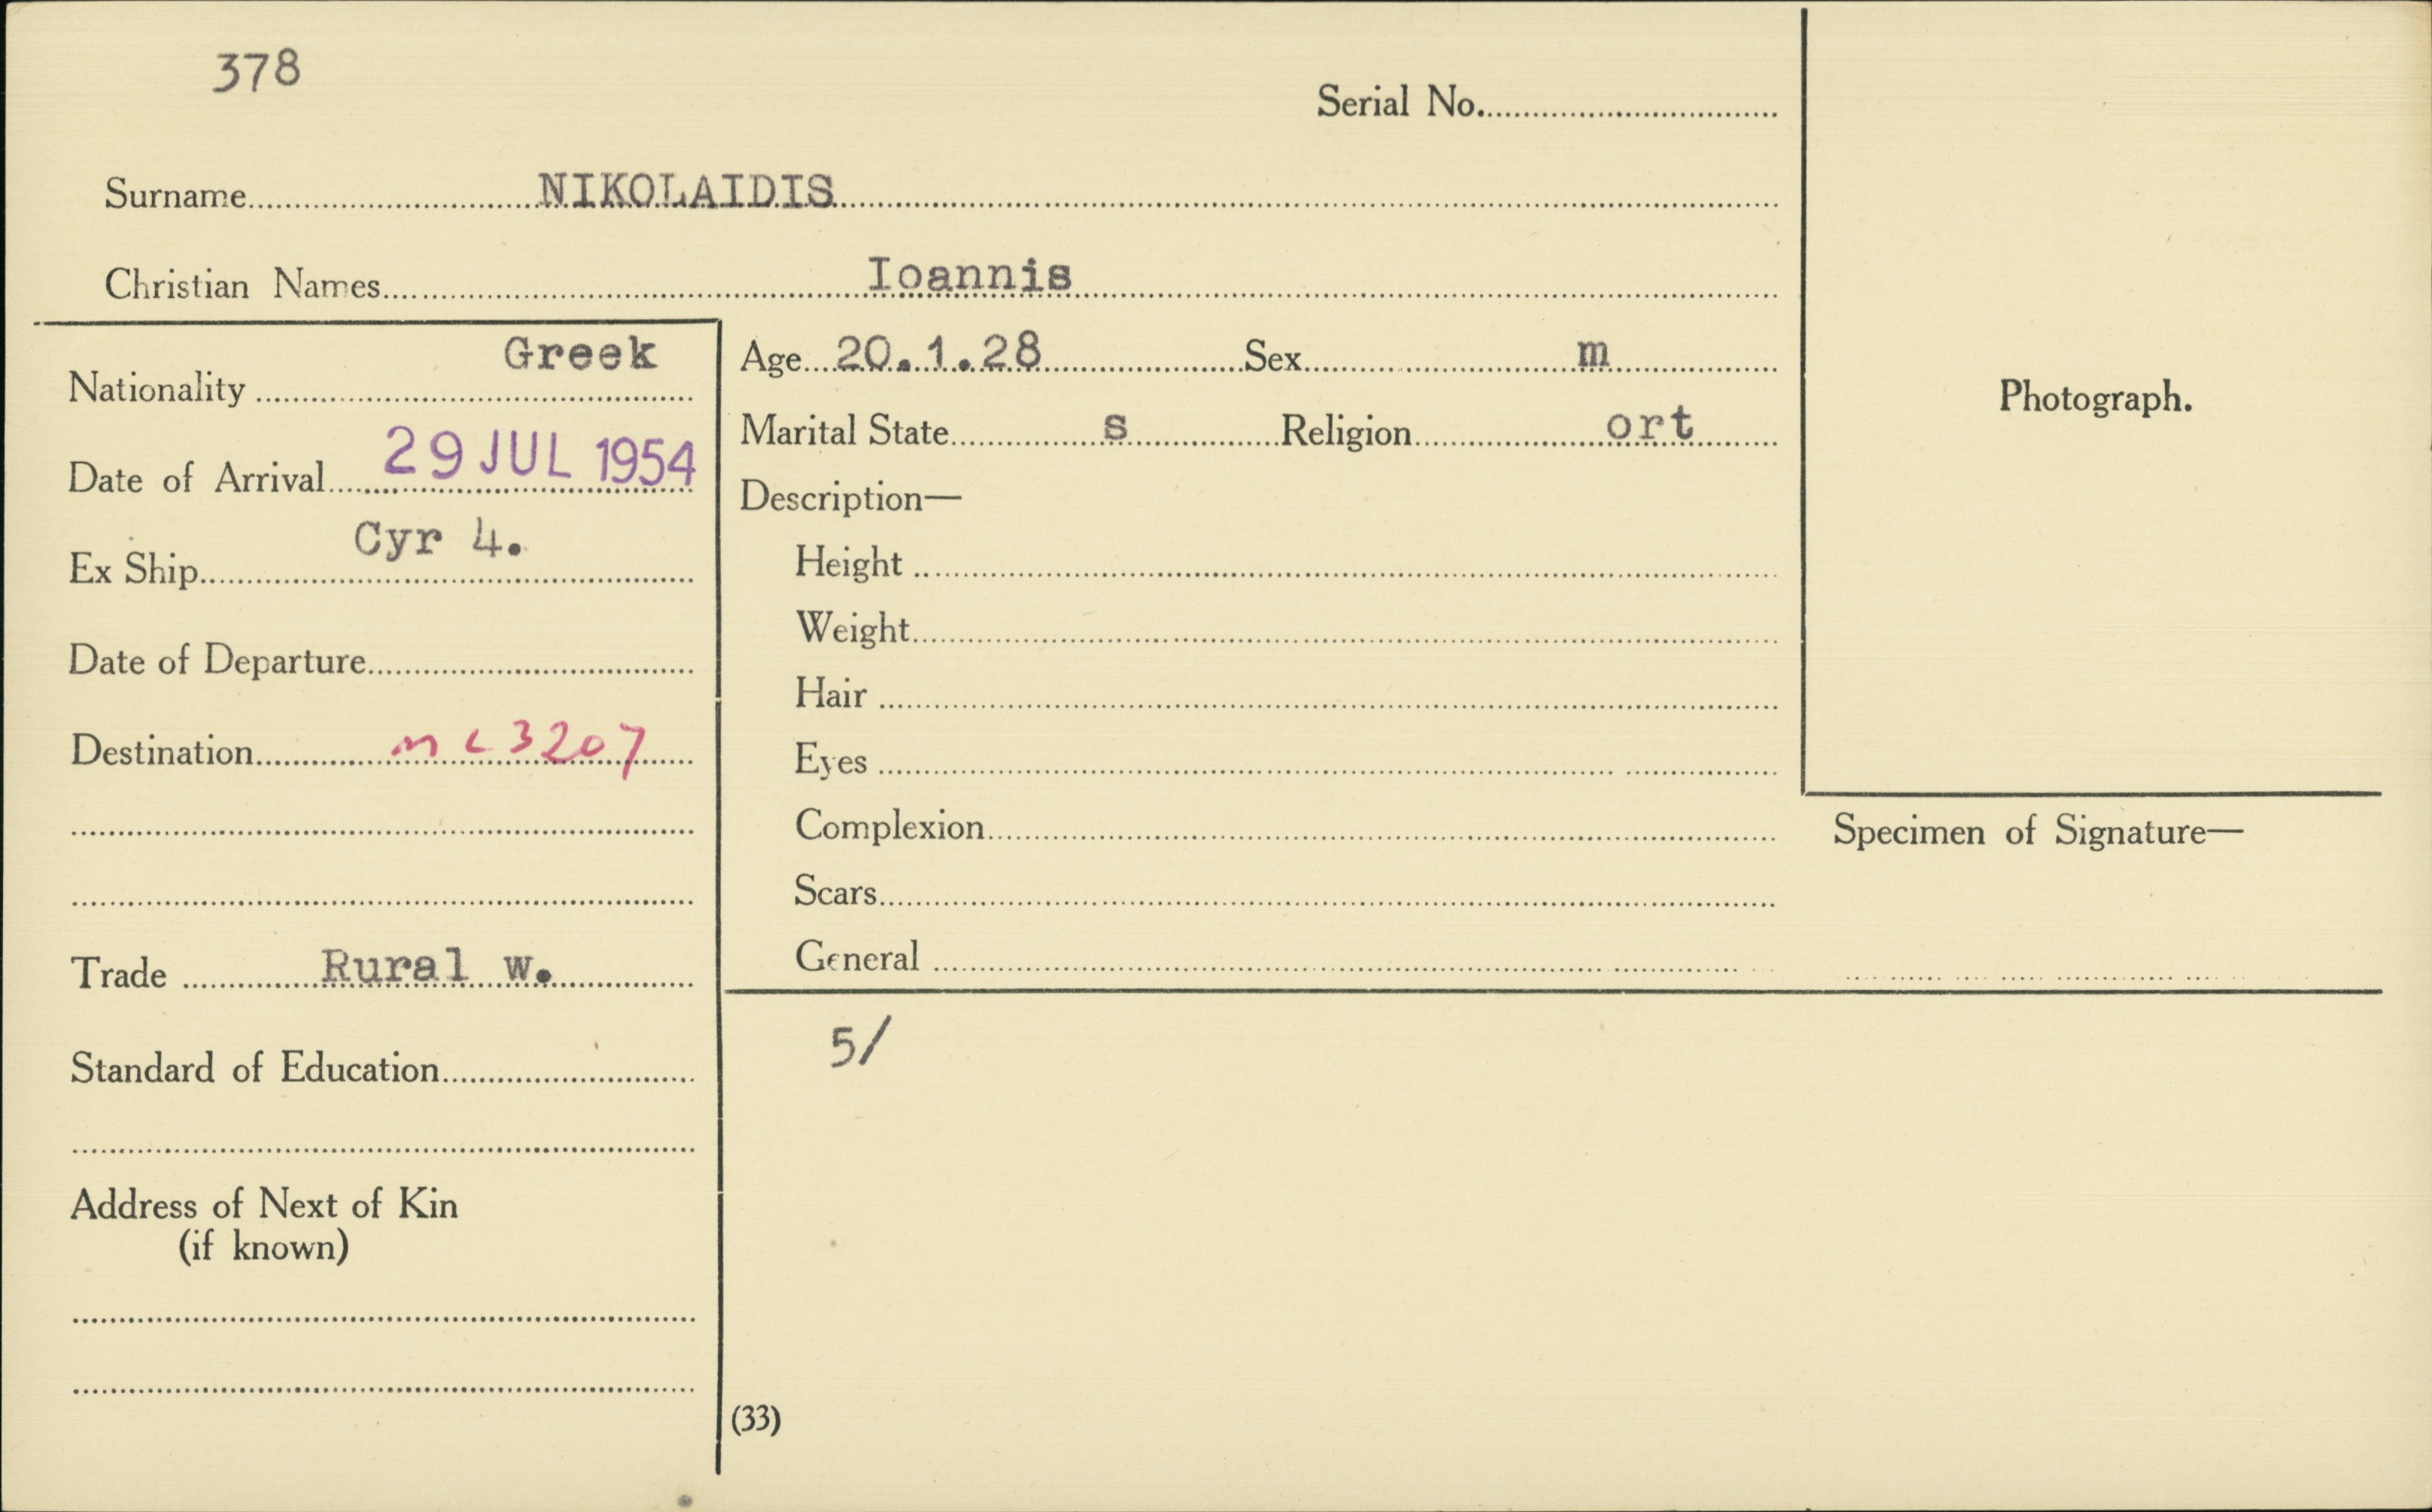 378
Serial No.
Surname NIKOLAIDIS
Christian Names Ioannis
Nationality Greek
Date of Arrival 29 JUL 1954
Ex Ship Cyr 4.
Date of Departure
Destination m c 3207
Trade Rural w.
Standard of Education
Address of Next of Kin
(if known)
Age 20.1.28 Sex m
Marital State s Religion ort
Description—
Height
Weight
Hair
Eyes
Complexion
Scars
General
Photograph.
Specimen of Signature—
5/
(33)